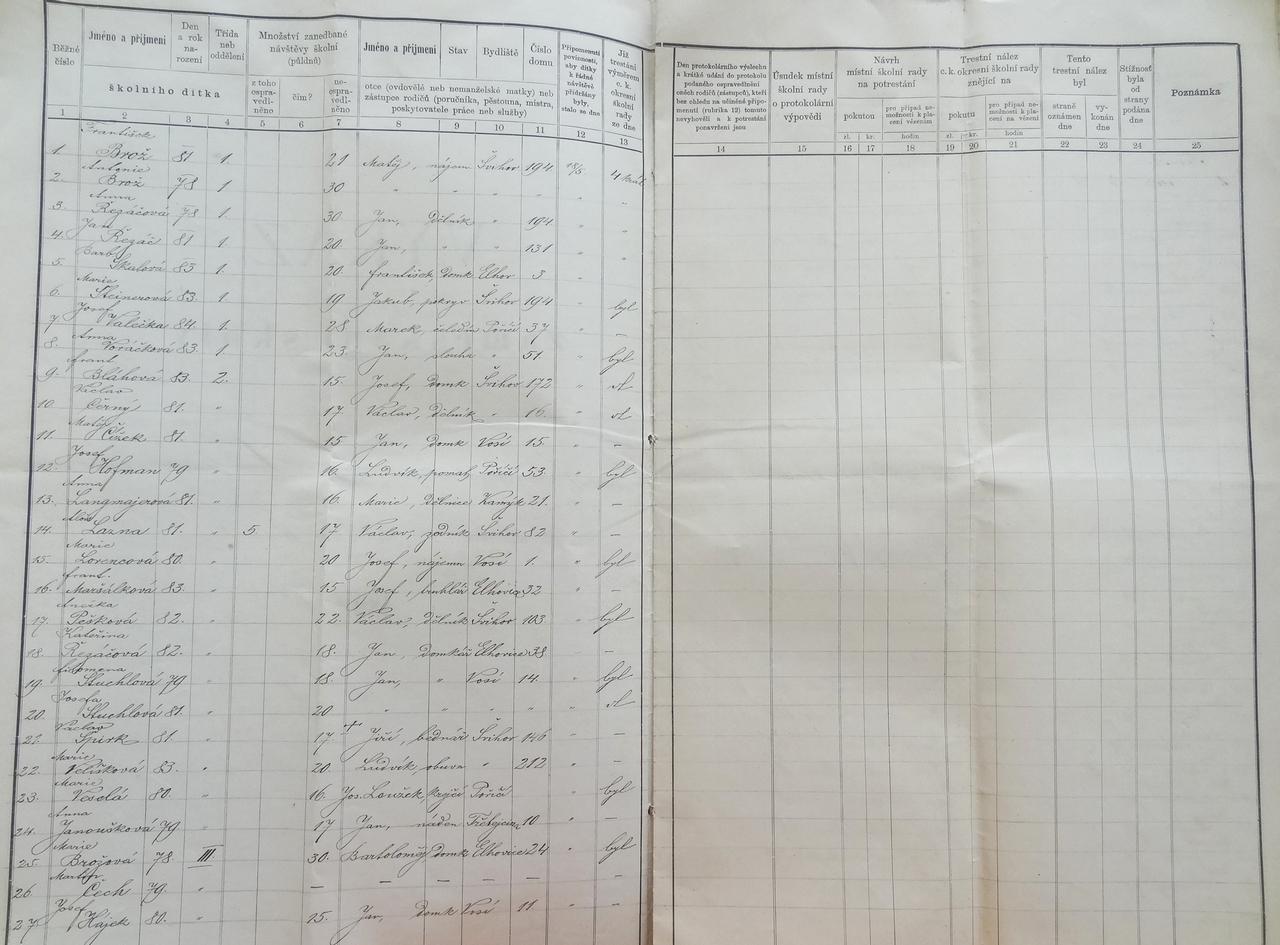 Běžné číslo
Jméno a příjmení
Den a rok narození
Třída neb oddělení
Množství zanedbané návštěvy školní (půldnů)
Jméno a příjmení
Stav
Bydliště
Číslo domu
Připomenutí povinnosti, aby dítky k řádné návštěvě přidržány byly, stalo se dne
Již trestáni výměrem c. k. okresní školní rady ze dne
školního dítka
z toho ospravedlněno
čím?
neospravedlněno
otce (ovdovělé neb nemanželské matky) neb zástupce rodičů (poručníka, pěstouna, mistra, poskytovatele práce neb služby)
1 2 3 4 5 6 7 8 9 10 11 12 13
1. František Brož 81 1. 21 Matěj, nájem Švihov 194 4 krát
2. Antonie Brož 78 1 30 " " "
3. Anna Řezáčová 78 1. 30 Jan, Dělník " 194 " "
4. Jan Řezáč 81 1. 20. Jan, " " 131 " "
5. Barb. Škulová 83 1. 20. František, domk Elhov 3 "
6. Marie Steinerová 83. 1. 19 Jakub, pokryv Švihov 194 " byl
7. Josef Valečka 84. 1. 28 Marek, čeledín Poříčí 37 " –
8. Anna Voráčková 83. 1. 23. Jan, slouha " 51. " byl
9. Frant Bláhová 83. 2. 15. Josef, domk Švihov 172 "
10. Václav Černý 81. " 17. Václav, Dělník " 16. "
11. Matěj Čížek 81. " 15 Jan, domk Vosí 15. " –
12. Josef Hofman 79 " 16. Ludvík, pomah Poříčí 53. " byl
13. Anna Langmajerová 81. " 16. Marie, Dělnice Kamýk 21. " –
14. Alois Lazna 81. " 5. 17 Václav, zedník Švihov 82 " –
15. Marie Lorencová 80. 20 Josef, nájemn Vosí 1. " byl
16. Frant. Maršálková 83. " 15 Josef, truhlář Elhovice 32 " –
17. Ančka Pešková 82. " 22. Václav, Dělník Švihov 103 " byl
18. Kateřina Řezáčová 82. " 18. Jan, domkář Elhovice 38 –
19. Filomena Stuchlová 79 " 18. Jan, " Vosí 14. " byl
20. Josefa Stuchlová 81. " 20 " " " " "
21. Václav Špirk 81 " 17. Jiří, bednář Švihov 146 " –
22. Marie Velíšková 83. " 20. Ludvík, obuvn " 212 " –
23. Marie Veselá 80. 16. Jos. Loužek, krejčí Poříčí byl
24. Anna Janoušková 79 " 17 Jan, náden 10. " –
25. Marie Brožová 78. III. 30. Bartoloměj domk Elhovice 24 " byl
26. Čech 79. " – – – – –
27. Josef Hájek 80. " 25. Jan, domk Vosí 11. " –
Den protokolárního výslechu a krátké udání do protokolu podaného ospravedlnění oněch rodičů (zástupců), kteří bez ohledu na učiněné připomenutí (rubrika 12) tomuto nevyhověli a k potrestání ponavrženi jsou
Úsudek místní školní rady o protokolární výpovědi
Návrh místní školní rady na potrestání
Trestní nález c. k. okresní školní rady znějící na
Tento trestní nález byl
Stížnost byla od strany podána dne
Poznámka
pokutou
pro případ nemožnosti k placení vězením
pokutu
pro případ nemožnosti k placení na vězení
straně oznámen dne
vykonán dne
zl. kr. hodin zl. kr. hodin
14 15 16 17 18 19 20 21 22 23 24 25